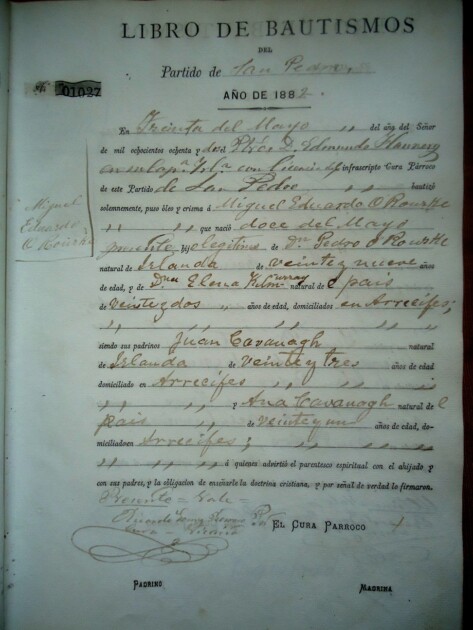 LIBRO DE BAUTISMOS
DEL
Partido de San Pedro,
AÑO DE 1882.
01027
En Treinta del Mayo " del año del Señor
de mil ochocientos ochenta y dos el Pbro. D. Edmundo Flannery
en con infrascripto Cura Párroco
de este Partido de San Pedro bautizó
solemnemente, puso óleo y crisma á Miguel Eduardo O Rourke
" " " " que nació doce del Mayo
presente hijo legítimo de Dn Pedro O Rourke
natural de Irlanda de veinte y nueve años
de edad, y de Dña Elena natural de l pais
de veintey dos " años de edad, domiciliados en Arrecifes;
" " " " " " "
siendo sus padrinos Juan Cavanagh natural
de Irlanda de veinte y tres años de edad
domiciliado en Arrecifes " " "
" " " " y Ana Cavanagh natural de l
pais " " de veinte y un años de edad, do-
miciliados en Arrecifes; " " " "
" " " " á quienes advirtió el parentesco espiritual con el ahijado y
con sus padres, y la obligacion de enseñarle la doctrina cristiana, y por señal de verdad lo firmaron.
Vale
EL CURA PARROCO
PADRINO
MADRINA
Miguel
Eduardo
O Rourke